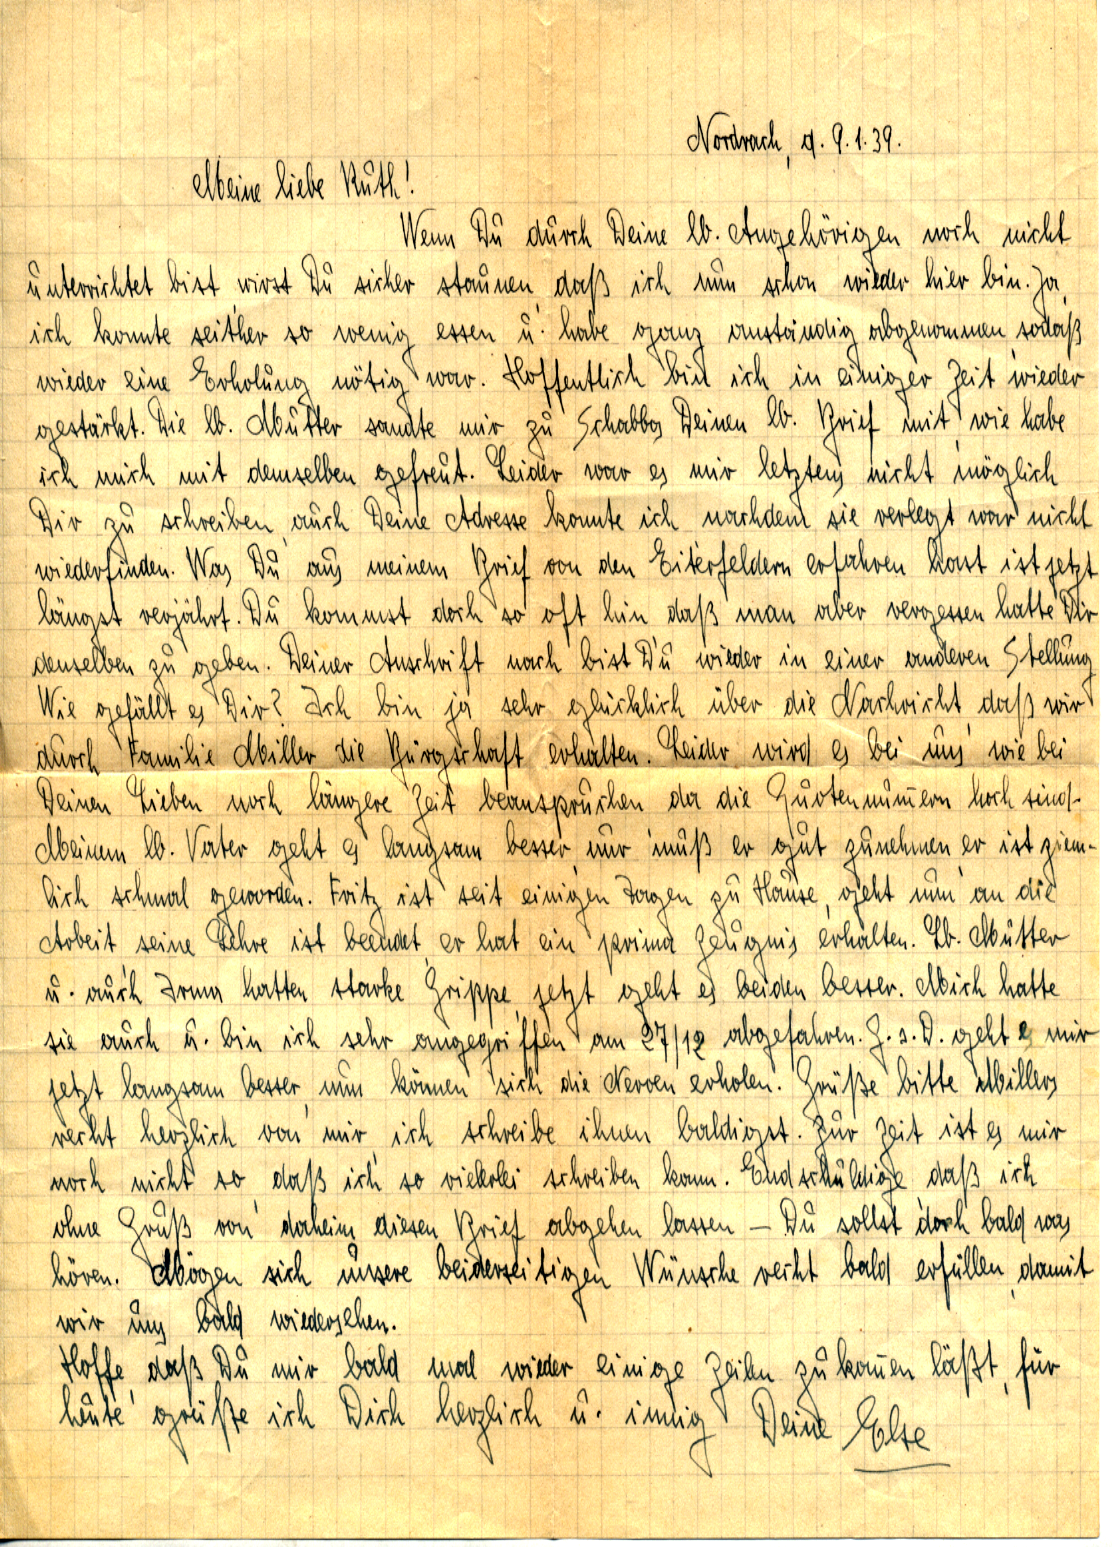 Nordrach, d. 9.1.39.
Meine liebe Ruth!
Wenn Du durch Deine lb. Angehörigen noch nicht
unterrichtet bist, wirst Du sicher staunen, daß ich nun schon wieder hier bin. Ja,
ich konnte seither so wenig essen u. habe ganz anständig abgenommen, sodaß
wieder eine Erholung nötig war. Hoffentlich bin ich in einiger Zeit wieder
gestärkt. Die lb. Mutter sandte mir zu Schabbos Deinen lb. Brief mit, wie habe
ich mich mit demselben gefreut. Leider war es mir letztens nicht möglich
Dir zu schreiben, auch Deine Adresse konnte ich nachdem sie verlegt war nicht
wiederfinden. Was Du aus meinem Brief von den Eiterfeldern erfahren hast ist jetzt
längst verjährt. Du kommst doch so oft hin daß man aber vergessen hatte Dir
denselben zu geben. Deiner Anschrift nach bist Du wieder in einer anderen Stellung
Wie gefällt es Dir? Ich bin ja sehr glücklich über die Nachricht, daß wir
durch Familie Miller die Bürgschaft erhalten. Leider wird es bei uns wie bei
Deinen Lieben noch längere Zeit beanspruchen da die Quotennum̅ern hoch sind.
Meinem lb. Vater geht es langsam besser, nur muß er gut zunehmen er ist ziem-
lich schmal geworden. Fritz ist seit einigen Tagen zu Hause, geht nun an die
Arbeit seine Lehre ist beendet, er hat ein prima Zeugnis erhalten. Lb. Mutter
u. auch Irma hatten starke Grippe, jetzt geht es beiden besser. Mich hatte
sie auch u. bin ich sehr angegriffen am 27/12 abgefahren. G. s. D. geht es mir
jetzt langsam besser, nun können sich die Nerven erholen. Grüße bitte Millers
recht herzlich von mir, ich schreibe ihnen baldigst. Zur Zeit ist es mir
noch nicht so, daß ich so vielerlei schreiben kann. Endschuldige, daß ich
ohne Gruß von daheim diesen Brief abgehen lassen — Du sollst doch bald was
hören. Mögen sich unsere beiderseitigen Wünsche recht bald erfüllen, damit
wir uns bald wiedersehen.
Hoffe, daß Du mir bald mal wieder einige Zeilen zukom̅en läßt, für
heute grüße ich Dich herzlich u. innig Deine Else